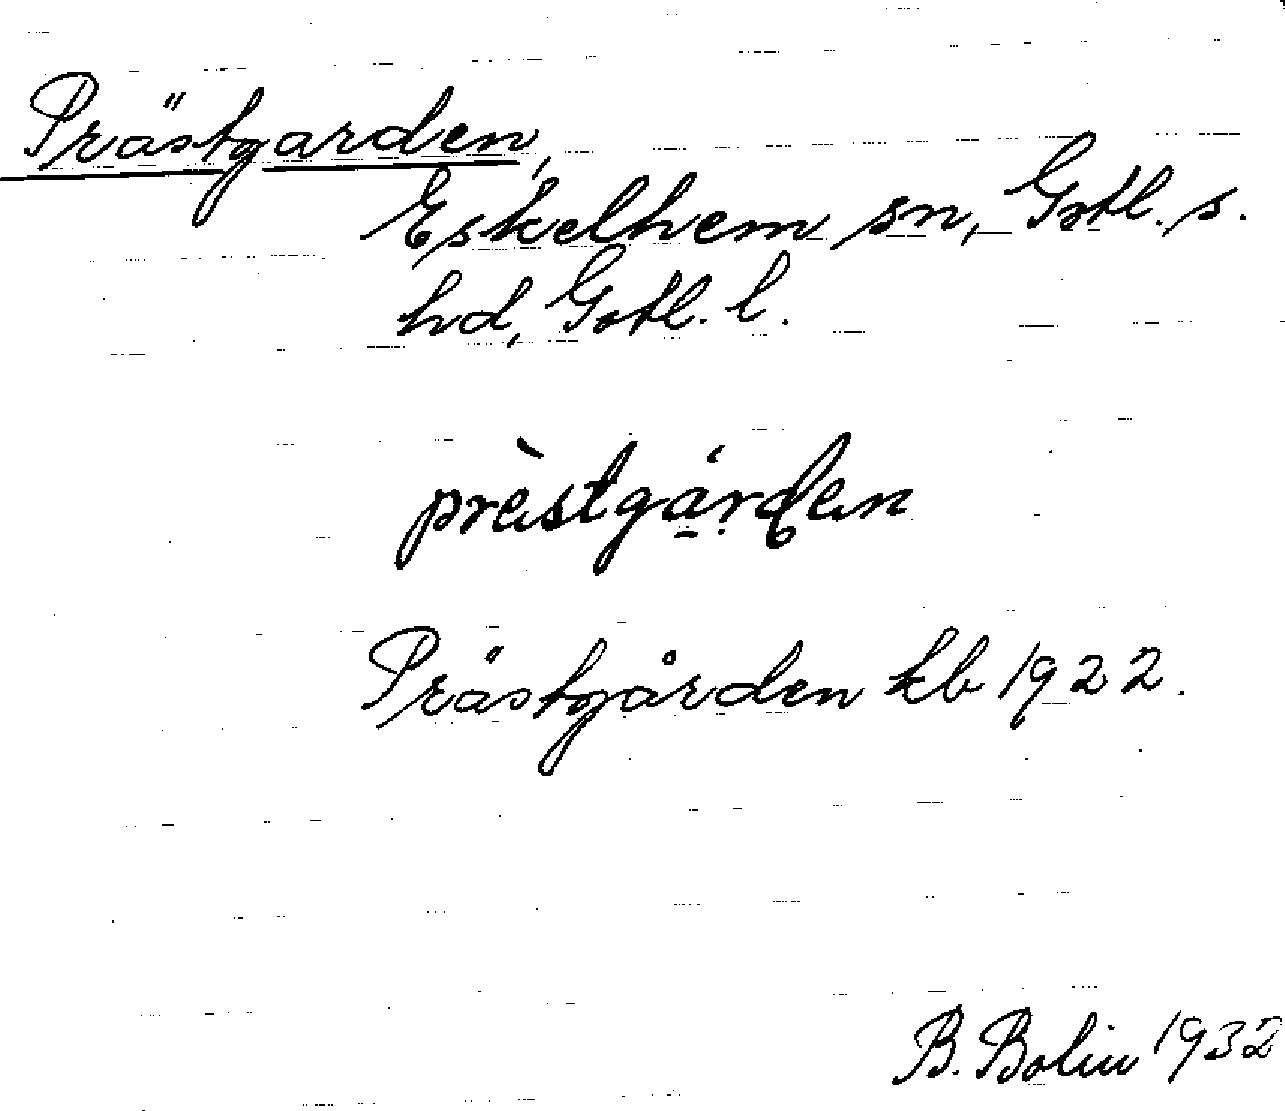 Prästgarden,
Eskelhem sn, Gotl. s.
hd, Gotl. l.
prèstgárdan
Prästgården kb 1922.
B. Bolin 1932